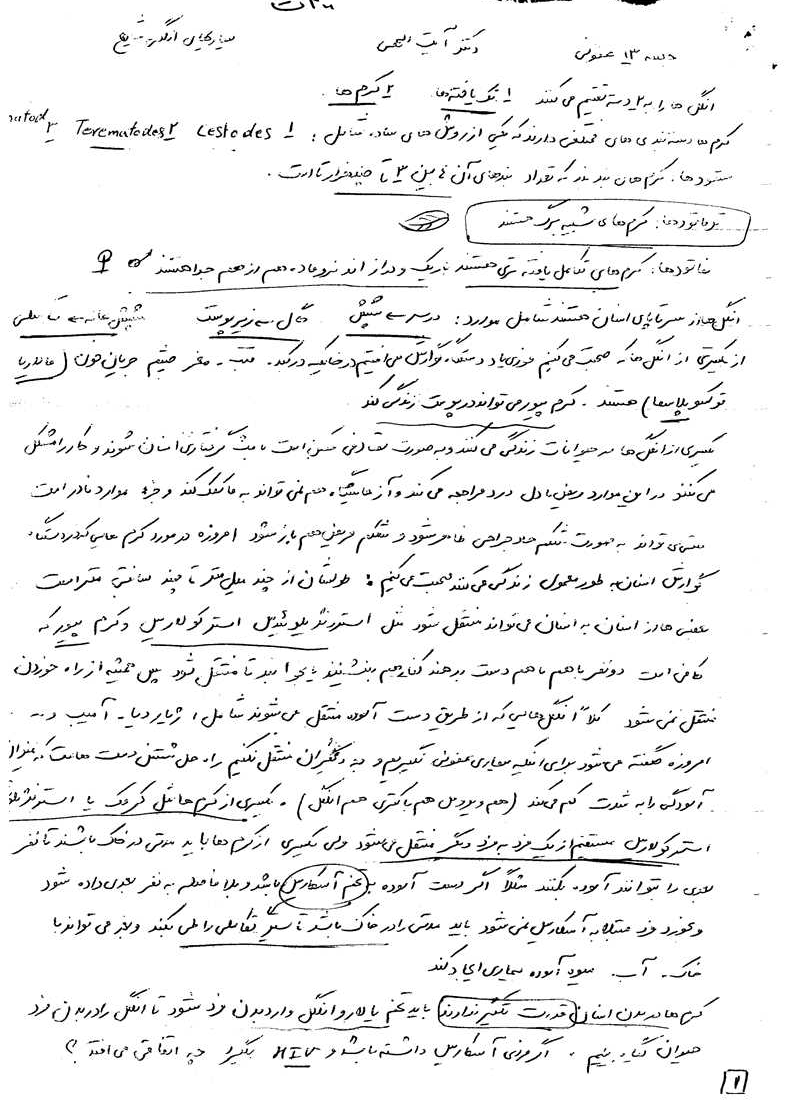 جلسه ۱۳ عفونی دکتر آیت الهی بیماریهای انگلی شایع
انگل ها را به ۲ دسته تقسیم می کنند ۱ تک یاخته ها ۲ کرم ها.
کرم ها دسته بندی های مختلفی دارند که یکی از روش های ساده شامل: ۱ Cestodes ۲ Terematodes ۳
سستودها: کرم های بند بند که تعداد بندهای آن ها بین ۳ تا چند هزار تا است.
ترماتودها: کرم های شبیه برگ هستند
نماتودها: کرم های تکامل یافته تری هستند باریک و دراز اند نر و ماده هم از هم جدا هستند ♂ ♀
انگل ها از سر تا پای انسان هستند شامل موارد: در سر ← شپش گال ← زیر پوست شپش عانه ←
از یکسری از انگل ها که صحبت می کنیم فوری یاد دستگاه گوارش می افتیم در حالیکه در کبد. قلب. مغز چشم جریان خون (مالاریا
توکسوپلاسما) هستند. کرم پیور می تواند در پوست زندگی کند
یکسری از انگل ها در حیوانات زندگی می کنند و به صورت تصادفی ممکن است باعث گرفتاری انسان شوند و کار را مشکل
می کنند در این موارد مریض با دل درد مراجعه می کند و آزمایشگاه هم نمی تواند به ما کمک کند و جزء موارد نادر است
حتی می تواند به صورت شکم حاد جراحی ظاهر شود و شکم مریض هم باز شود امروزه در مورد کرم هایی که در دستگاه
گوارش انسان به طور معمول زندگی می کنند صحبت می کنیم: طولشان از چند میلی متر تا چند سانتی متر است
بعضی ها از انسان به انسان می تواند منتقل شود مثل استرونژیلوئیدس استرکولاریس و کرم پیور که
کافی است دو نفر با هم با هم دست بدهند کنار هم بنشینند یا بخوابند تا منتقل شود پس همیشه از راه خوردن
منتقل نمی شود کلاً انگل هایی که از طریق دست آلوده منتقل می شوند شامل: ژیاردیا. آمیب و ...
امروزه گفته می شود برای اینکه بیماری عفونی نگیریم و به دیگران منتقل نکنیم راه حل شستن دست هاست که میزان
آلودگی را به شدت کم می کند (هم ویروس هم باکتری هم انگل). یکسری از کرم ها مثل کرمک یا
استرکولاریس مستقیم از یک فرد به فرد دیگر منتقل می شود ولی یکسری از کرم ها باید مدتی در خاک باشند تا نفر
بعدی را بتوانند آلوده بکنند مثلاً اگر دست آلوده به تخم آسکاریس باشد و بلافاصله به نفر بعدی داده شود
و بخورد فرد مبتلا به آسکاریس نمی شود باید مدتی را در خاک باشد تا سیر تکاملی را طی بکند و بعد می تواند با
خاک. آب. میوه آلوده بیماری ایجاد کند
کرم ها در بدن انسان قدرت تکثیر ندارند باید تخم یا لارو انگل وارد بدن فرد شود تا انگل را در بدن فرد
حیوان گیاه ببینیم. اگر فردی آسکاریس داشته باشد و HIV بگیرد چه اتفاقی می افتد؟
۱